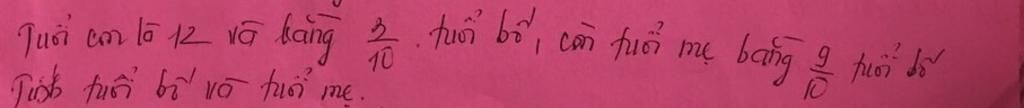 Tuổi con là 12 và bằng 3/10 tuổi bố, còn tuổi mẹ bằng 9/10 tuổi bố
Tính tuổi bố và tuổi mẹ.